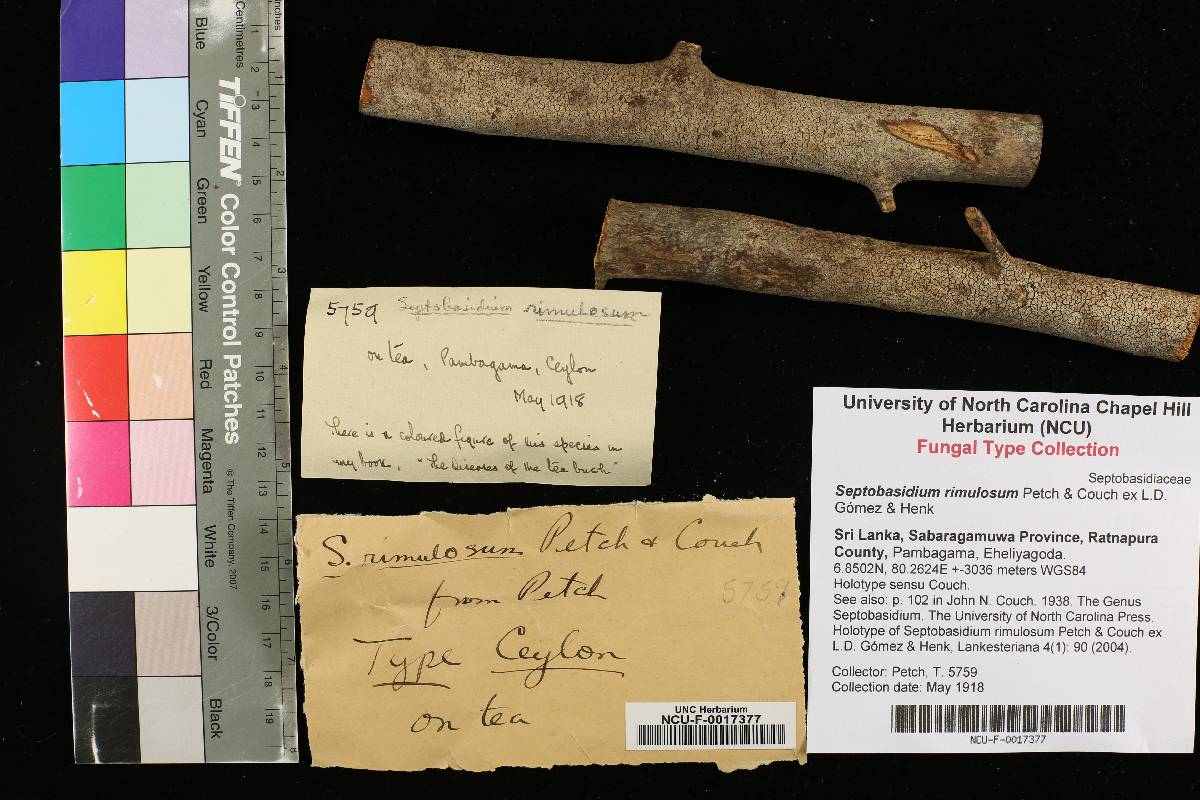 inches
Centimetres
TIFFEN® Color Control Patches
© The Tiffen Company, 2007
Blue
Cyan
Green
Yellow
Red
Magenta
White
3/Color
Black
1
2
3
4
5
6
7
8
9
10
11
12
13
14
15
16
17
18
19
1
2
3
4
5
6
7
8
5759 Septobasidium rimulosum
on tea, Pambagama, Ceylon
May 1918
There is a coloured figure of this species in
my book, "The Diseases of the tea bush"
S. rimulosum Petch & Couch
from Petch
5759
Type Ceylon
on tea
UNC Herbarium
NCU-F-0017377
University of North Carolina Chapel Hill
Herbarium (NCU)
Fungal Type Collection
Septobasidiaceae
Septobasidium rimulosum Petch & Couch ex L.D.
Gómez & Henk
Sri Lanka, Sabaragamuwa Province, Ratnapura
County, Pambagama, Eheliyagoda.
6.8502N, 80.2624E +-3036 meters WGS84
Holotype sensu Couch.
See also: p. 102 in John N. Couch. 1938. The Genus
Septobasidium. The University of North Carolina Press.
Holotype of Septobasidium rimulosum Petch & Couch ex
L.D. Gómez & Henk, Lankesteriana 4(1): 90 (2004).
Collector: Petch, T. 5759
Collection date: May 1918
NCU-F-0017377